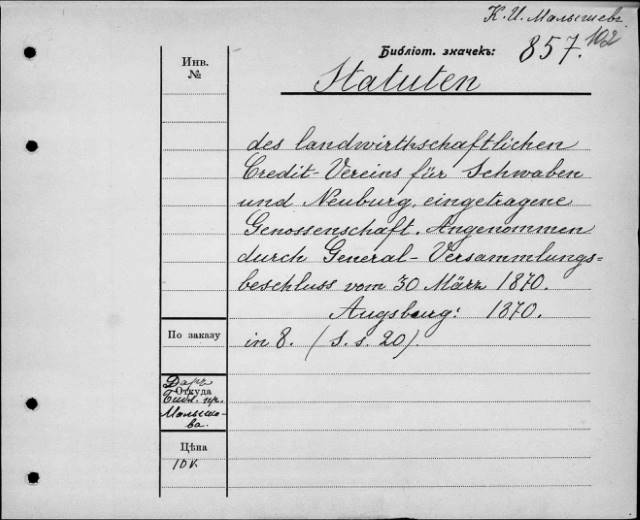 К. И. Малышевъ.
Библіот. значекъ: 857. 102
Инв.
№
Statuten
des landwirthschaftlichen
Credit-Vereins für Schwaben
und Neuburg, eingetragene
Genossenschaft. Angenommen
durch General-Versammlungs=
beschluss vom 30 März 1870.
Augsburg: 1870.
По заказу
in 8. (S. s. 20).
Даръ
Откуда
Библ. пр.
Малыше-
ва.
Цѣна
10 к.